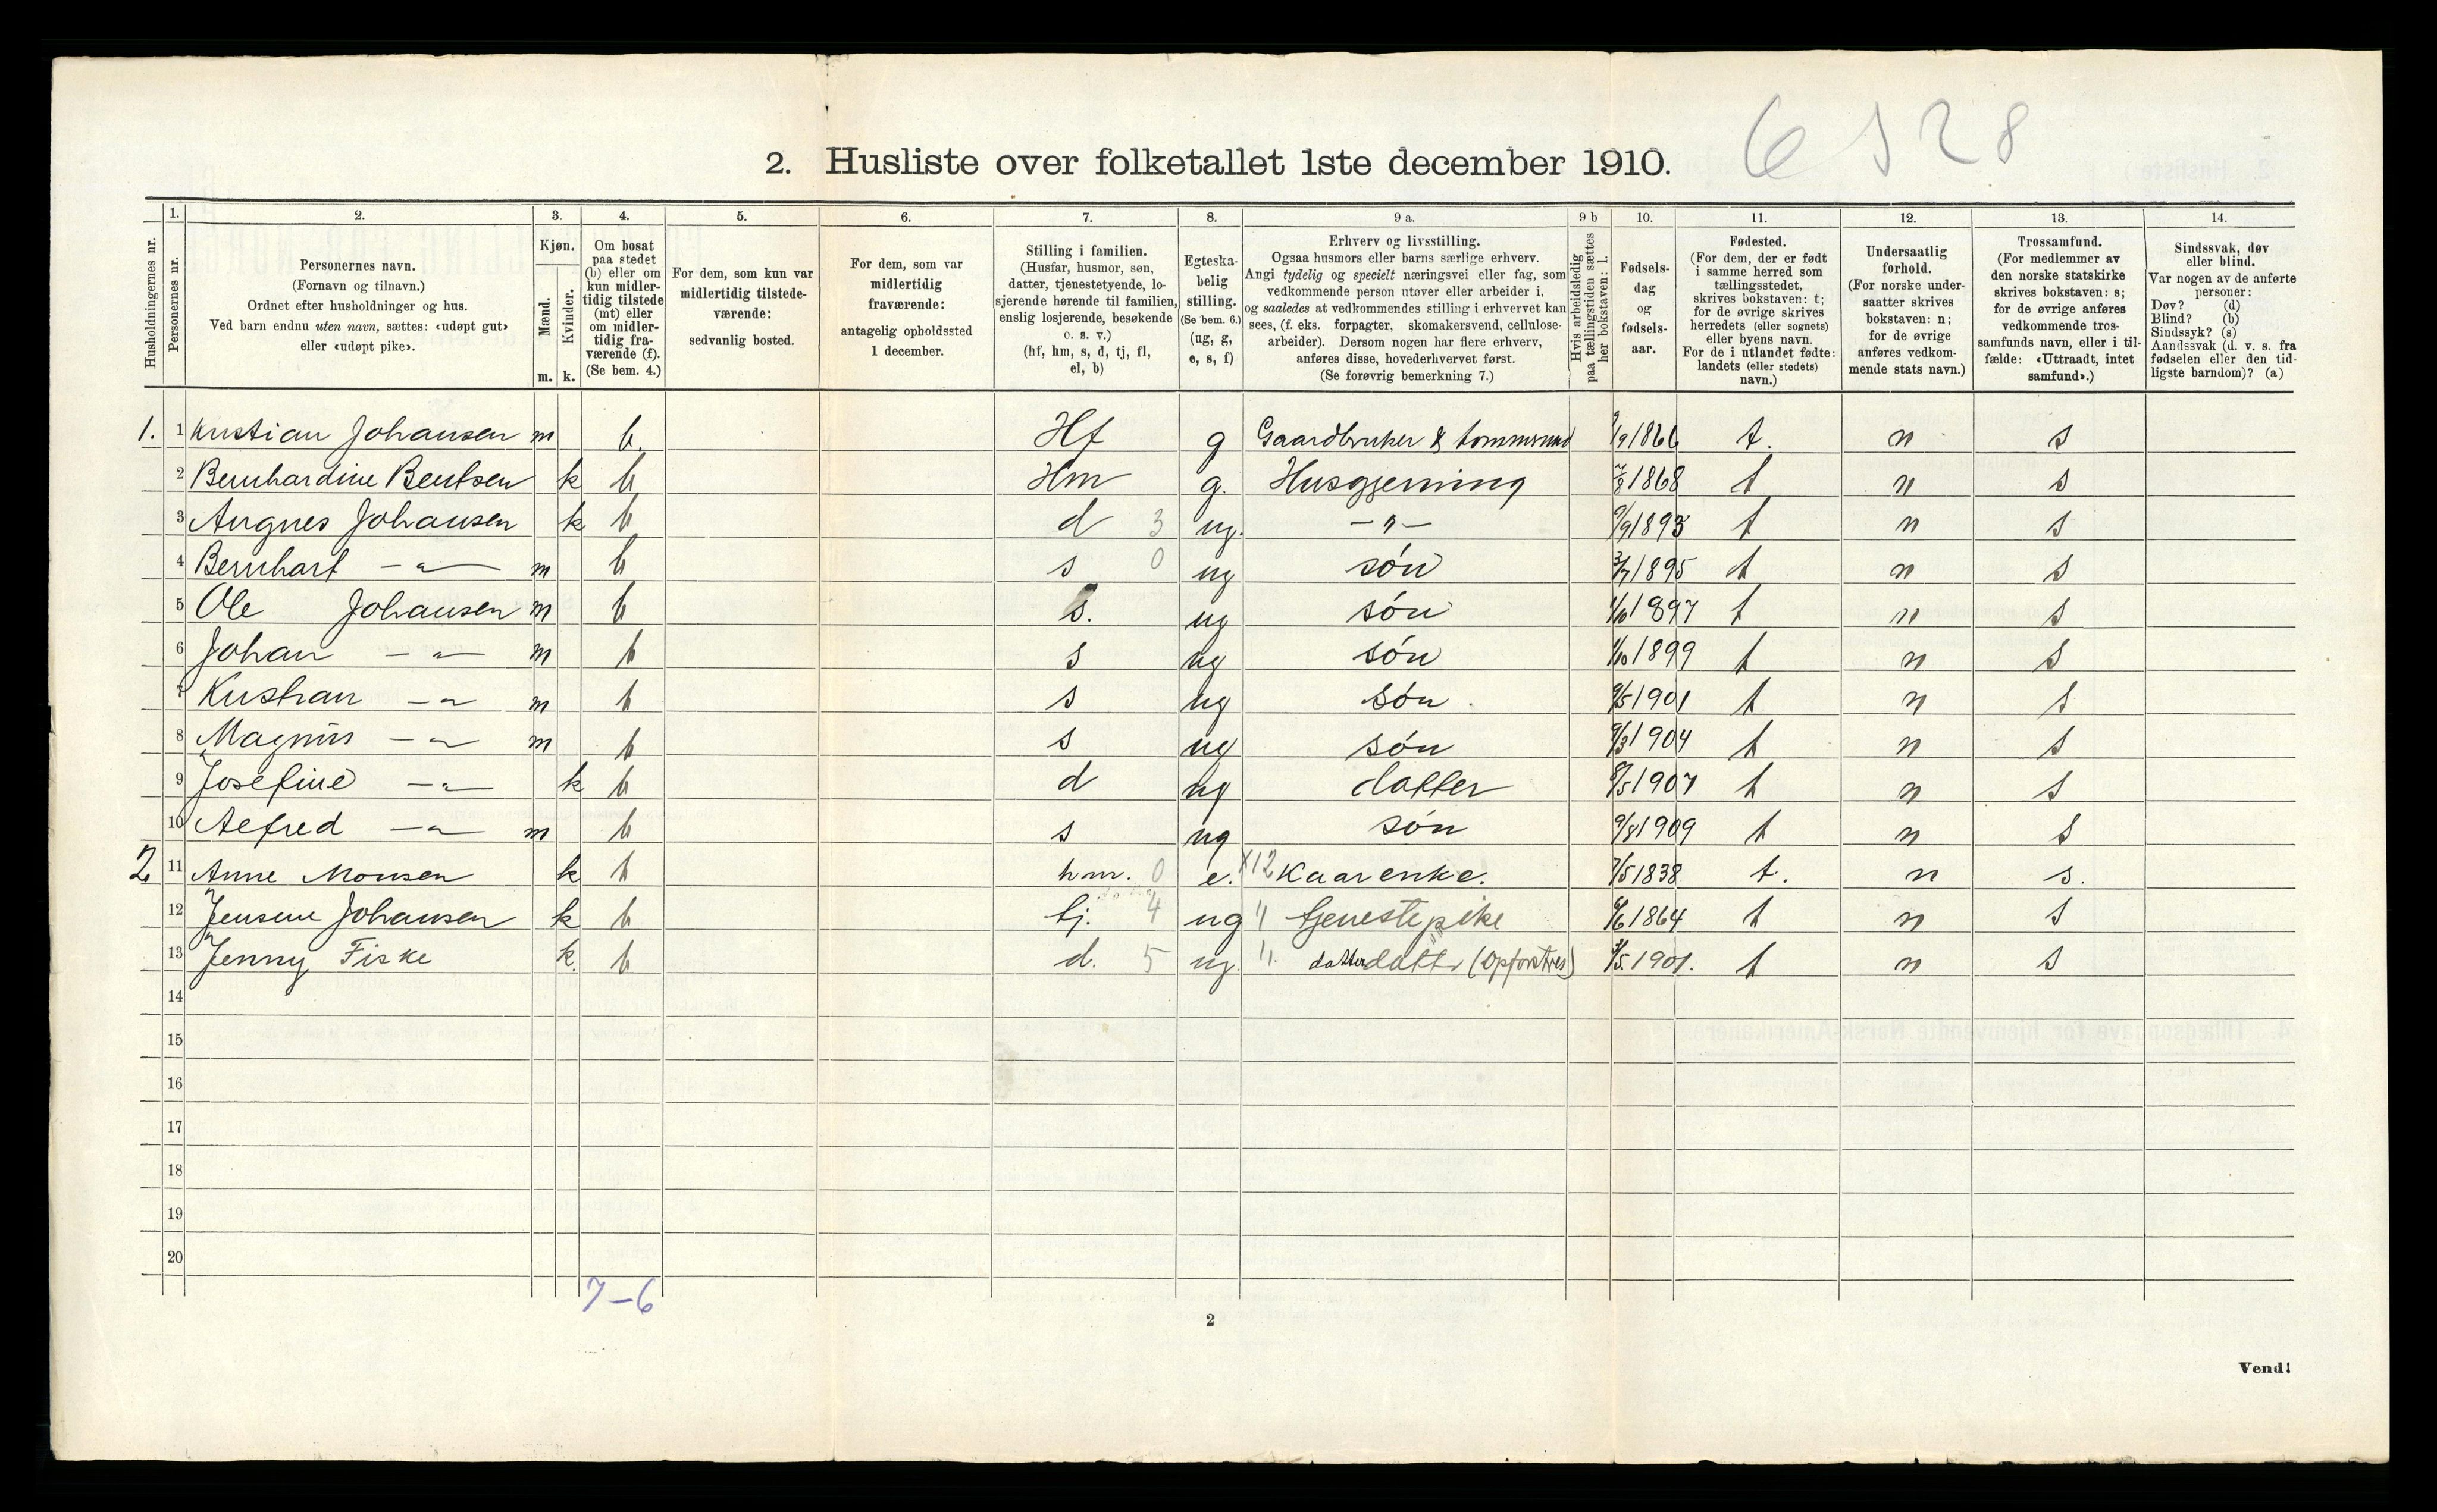 6 528
2. Husliste over folketallet 1ste december 1910.
Husholdningernes nr.
1. Personernes nr.
2. Personernes navn.
(Fornavn og tilnavn.)
Ordnet efter husholdninger og hus.
Ved barn endnu uten navn, sættes: «udøpt gut»
eller «udøpt pike».
3. Kjøn.
Mænd. m.
Kvinder. k.
4. Om bosat
paa stedet
(b) eller om
kun midler-
tidig tilstede
(mt) eller
om midler-
tidig fra-
værende (f).
(Se bem. 4.)
5. For dem, som kun var
midlertidig tilstede-
værende:
sedvanlig bosted.
6. For dem, som var
midlertidig
fraværende:
antagelig opholdssted
1 december.
7. Stilling i familien.
(Husfar, husmor, søn,
datter, tjenestetyende, lo-
sjerende hørende til familien,
enslig losjerende, besøkende
o. s. v.)
(hf, hm, s, d, tj, fl,
el, b)
8. Egteska-
belig
stilling.
(Se bem. 6.)
(ug, g,
e, s, f)
9 a. Erhverv og livsstilling.
Ogsaa husmors eller barns særlige erhverv.
Angi tydelig og specielt næringsvei eller fag, som
vedkommende person utøver eller arbeider i,
og saaledes at vedkommendes stilling i erhvervet kan
sees, (f. eks. forpagter, skomakersvend, cellulose-
arbeider). Dersom nogen har flere erhverv,
anføres disse, hovederhvervet først.
(Se forøvrig bemerkning 7.)
9 b Hvis arbeidsledig
paa tællingstiden sættes
her bokstaven: l.
10. Fødsels-
dag
og
fødsels-
aar.
11. Fødested.
(For dem, der er født
i samme herred som
tællingsstedet,
skrives bokstaven: t;
for de øvrige skrives
herredets (eller sognets)
eller byens navn.
For de i utlandet fødte:
landets (eller stedets)
navn.)
12. Undersaatlig
forhold.
(For norske under-
saatter skrives
bokstaven: n;
for de øvrige
anføres vedkom-
mende stats navn.)
13. Trossamfund.
(For medlemmer av
den norske statskirke
skrives bokstaven: s;
for de øvrige anføres
vedkommende tros-
samfunds navn, eller i til-
fælde: «Uttraadt, intet
samfund».)
14. Sindssvak, døv
eller blind.
Var nogen av de anførte
personer:
Døv? (d)
Blind? (b)
Sindssyk? (s)
Aandssvak (d. v. s. fra
fødselen eller den tid-
ligste barndom)? (a)
1. 1 Kristian Johansen m b. Hf g Gaardbruker & 1866 t. n s
2 Bernhardine Bentsen k b Hm g. Husgjerning 7/8 1868 t n s
3 Augnes Johansen k b d 3 ug. -"- 9/9 1893 t n s
4 Bernhart -"- m b s 0 ug són 3/7 1895 t n s
5 Ole Johansen m b s. ug són 1/10 1897 t n s
6 Johan -"- m b s ug són 1/10 1899 t n s
7 Kristian -"- m b s ug són 9/5 1901 t n s
8 Magnus -"- m b s ug són 9/3 1904 t n s
9 Josefine -"- k b d ug datter 8/5 1907 t n s
10 Aefred -"- m b s ug són 9/8 1909 t n s
2 11 Anne Monsen k b hm. 0 e. x12 Kaarenke. 7/5 1838 t. n s.
12 Jensine Johansen k b tj. 4 ug " tjenestepike 6/6 1864 t n s
13 Jenny Fiske k. b d. 5 ug. " datterdatter (Opfostres) 3/5. 1901. t n s
14
15
16
17
18
19
20
7-6
2
Vend!